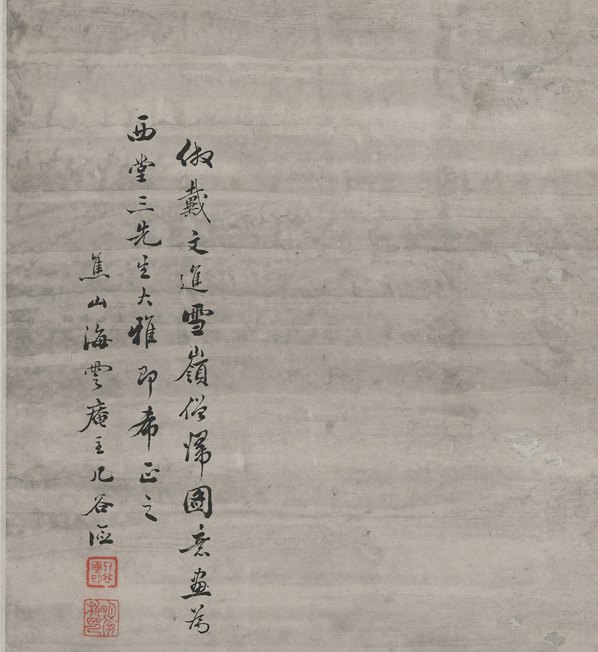 倣戴文進雪嶺僧歸圖意畫為
西堂三先生大雅即希正之
焦山海雲庵主几谷